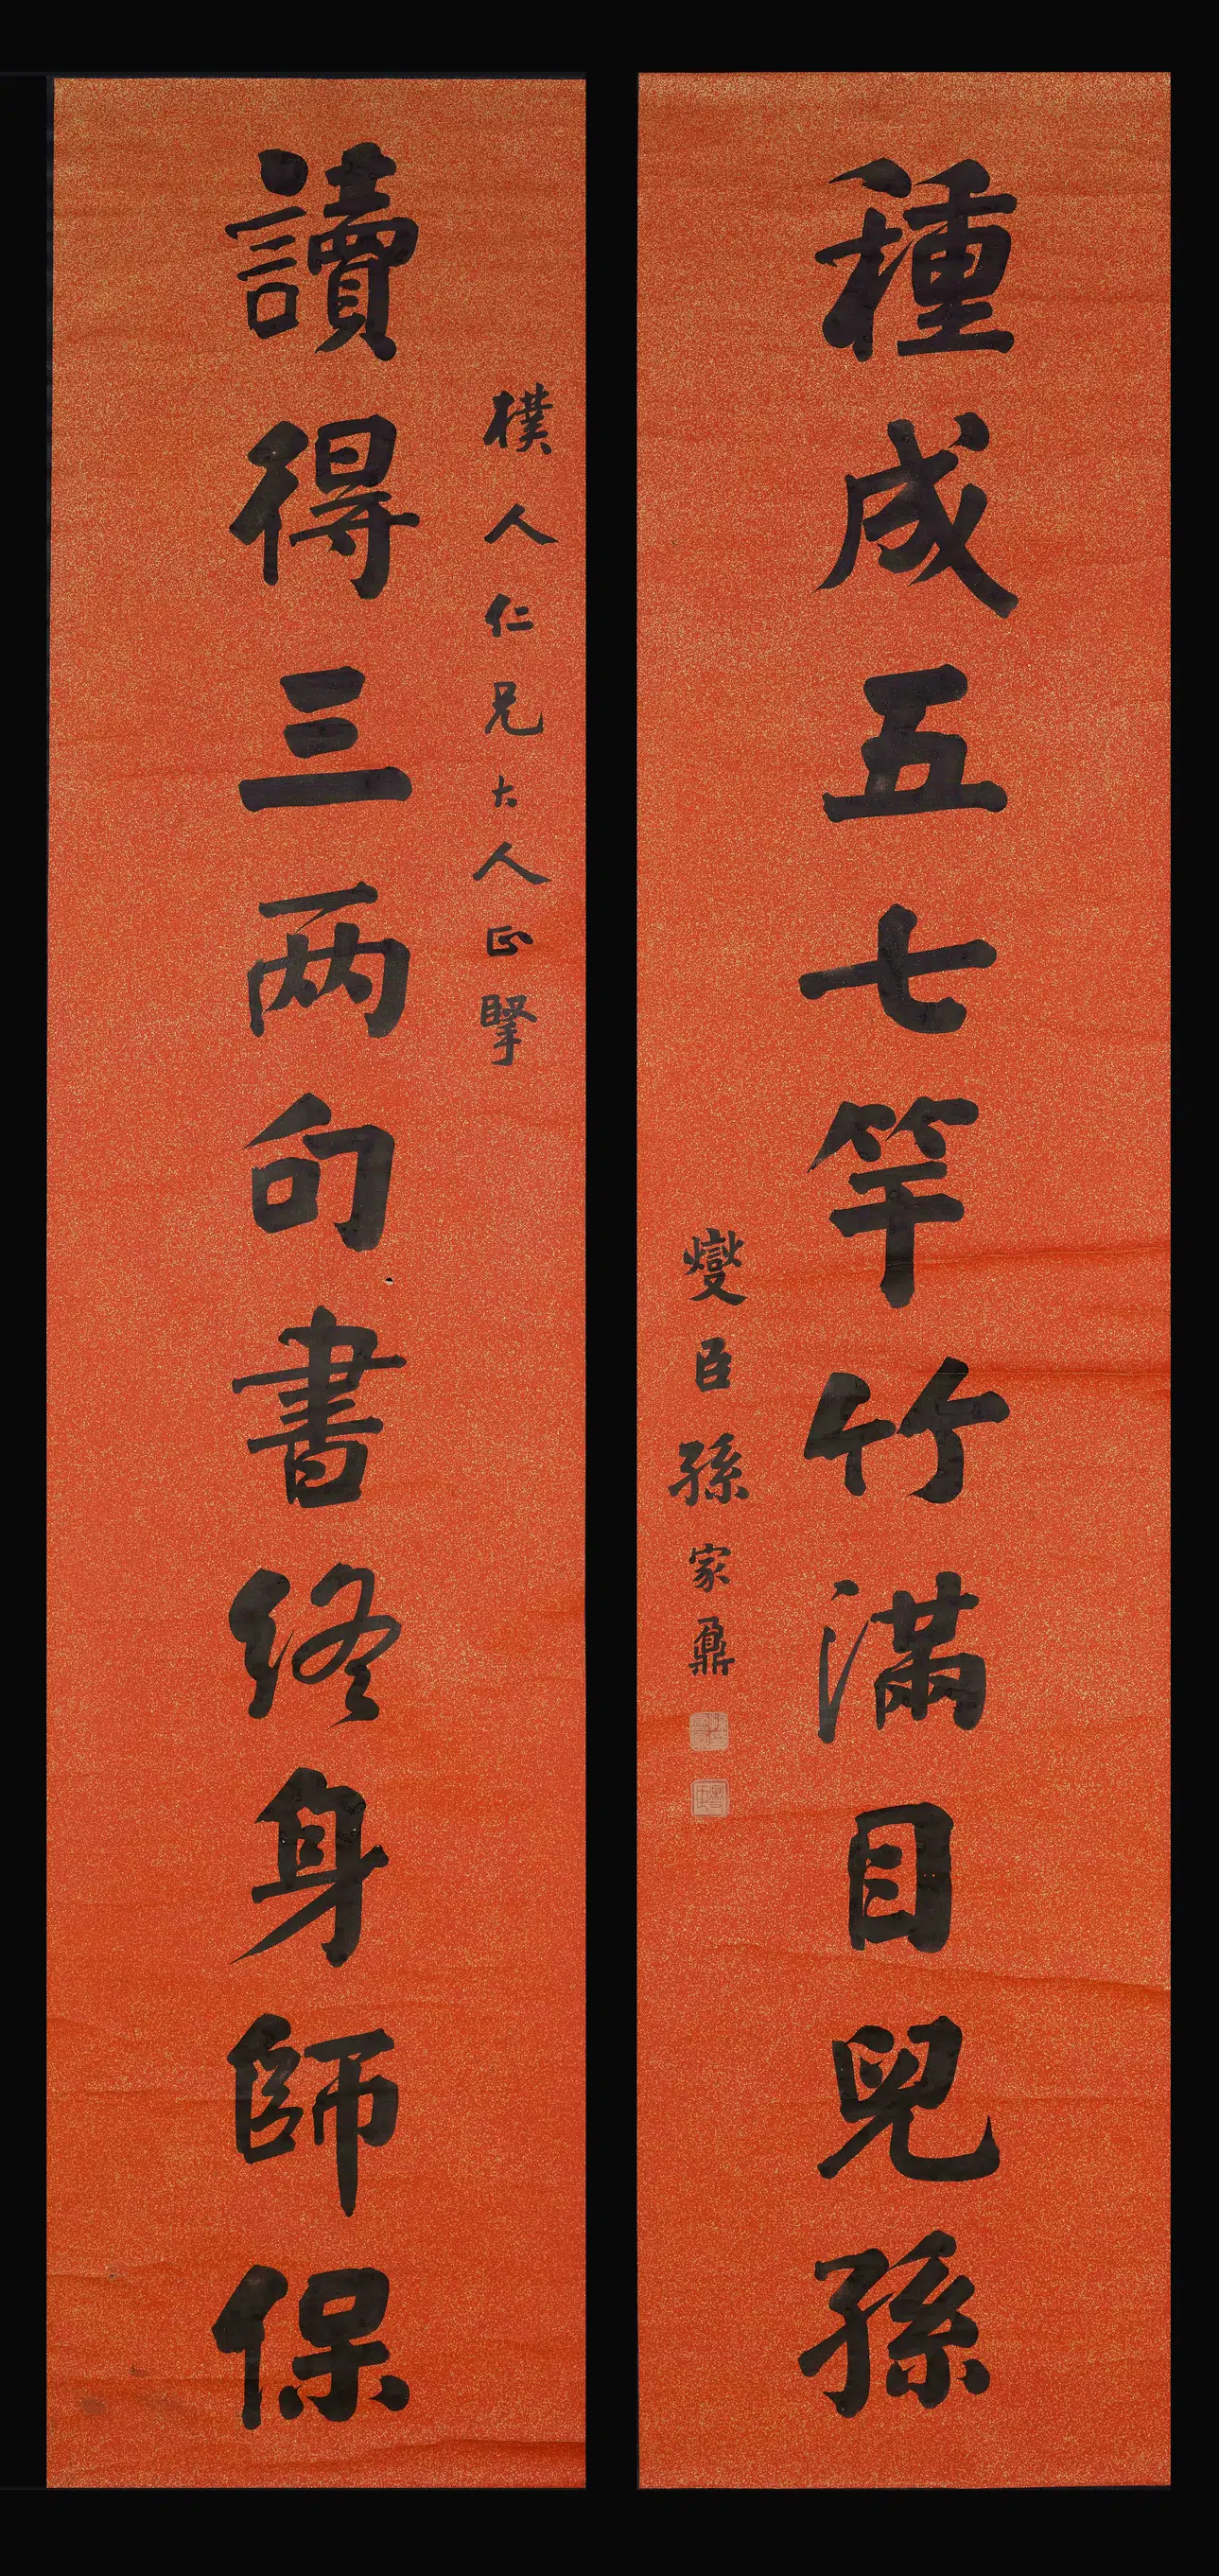 樸人仁兄大人正掔
讀得三两句書終身師保
種成五七竿竹滿目兒孫
燮臣孫家鼐